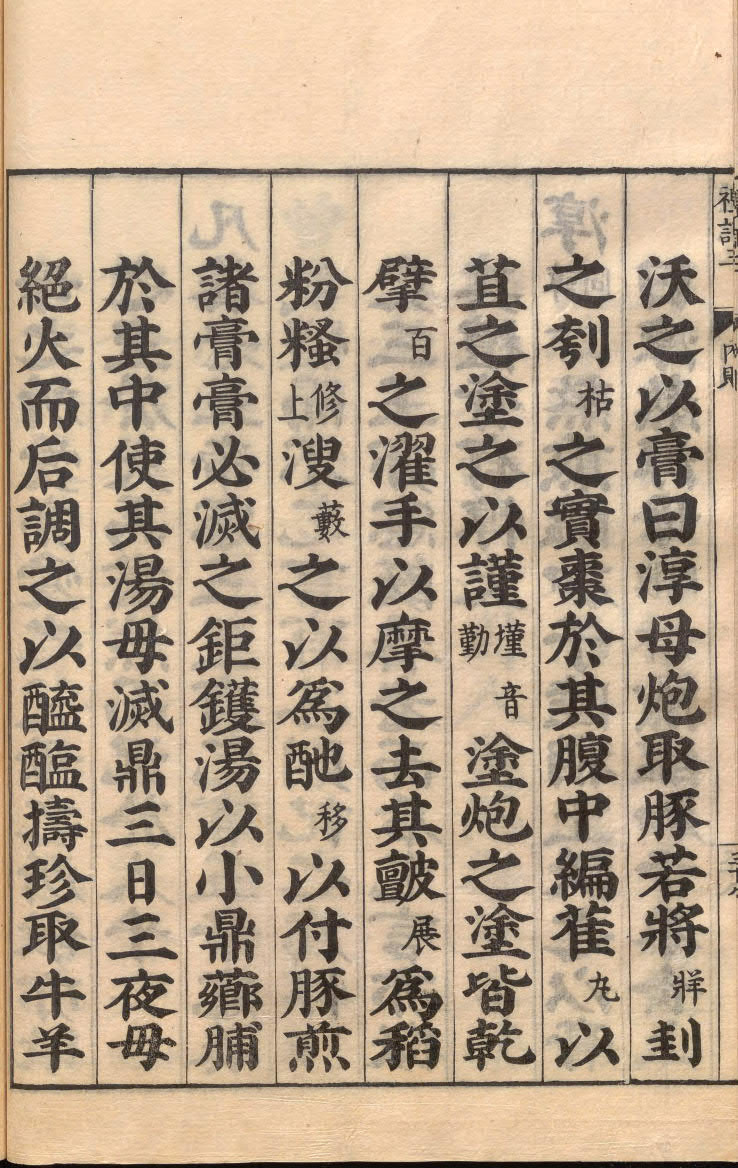 沃之以膏曰淳母炮取豚若將牂刲
之刳枯之實棗於其腹中編萑丸以
苴之塗之以謹墐音勤塗炮之塗皆乾
擘百之濯手以摩之去其皽展爲稻
粉糔修上溲藪之以爲酏移以付豚煎
諸膏膏必滅之鉅鑊湯以小鼎薌脯
於其中使其湯毋滅鼎三日三夜毋
絕火而后調之以醯醢擣珍取牛羊